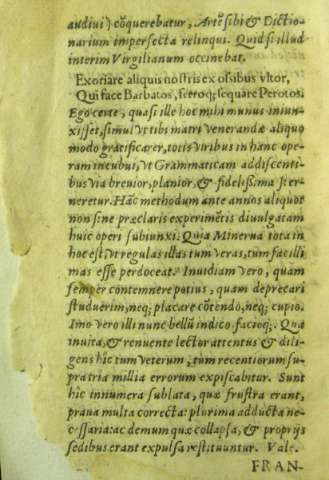 audiui) cõquerebatur, Artẽ sibi & Dictio-
narium imperfecta relinqui. Quid si illud
interim Virgilianum occinebat.
Exoriare aliquis nostris ex ossibus vltor,
Qui face Barbatos, ferroq; sequare Perotos.
Ego certe, quasi ille hoc mihi munus iniun-
xisset, simul vt tibi matri venerandæ aliquo
modo gratificarer, totis viribus in hanc ope-
ram incubui, vt Grammaticam addiscenti-
bus via breuior, planior, & fidelißima ster-
neretur. Hãc methodum ante annos aliquot
non sine præclaris experimẽtis diuulgatam
huic operi subiunxi. Quia Minerua tota in
hoc est, vt regulas illas tum veras, tum facilli
mas esse perdoceat. Inuidiam vero, quam
semper contemnere potius, quam deprecari
studuerim, neq; placare cõtendo, neq; cupio.
Imo vero illi nunc bellũ indico, facioq;. Qua
inuita, & renuente lector attentus & dili-
gens hic tum veterum, tum recentiorum su-
pra tria millia errorum expiscabitur. Sunt
hic innumera sublata, quæ frustra erant,
praua multa correcta: plurima adducta ne-
cessaria: ac demum quæ collapsa, & proprijs
sedibus erant expulsa restituuntur. Vale.
FRAN-